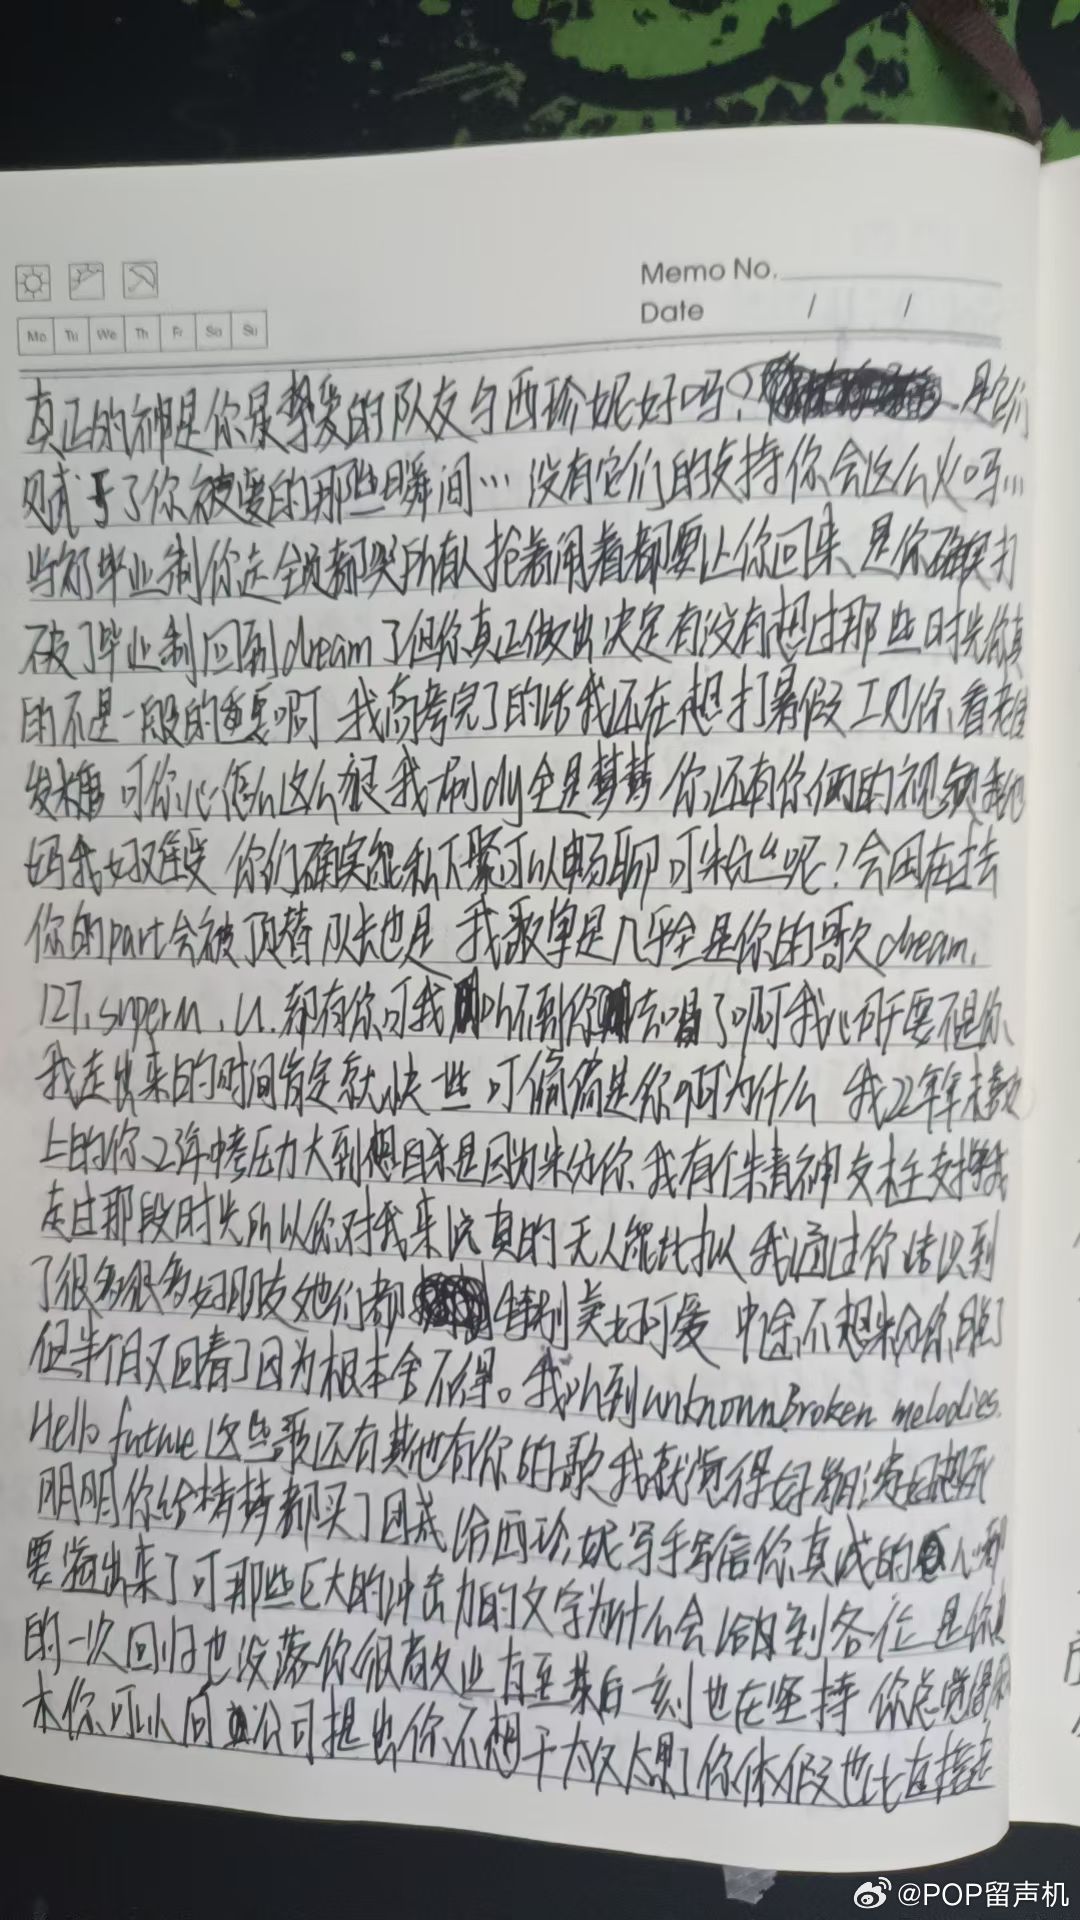 Memo No.
Date / /
Mo Tu We Th Fr Sa Su
真正的神是你最挚爱的队友与西珍妮好吗？ 是它们
赋予了你被爱的那些瞬间…没有它们的支持你会这么火吗…
当初毕业制你走全员都哭所有人抢着闹着都要让你回来、是你确实打
破了毕业制回到dream了但你真正做出决定有没有想过那些时光你真
的不是一般的重要啊 我高考完了的话我还在想打暑假工见你、看
可你心怎么这么狠我一刷dy全是 你还有你俩的视频我
妈我好难受 你们确实能私下 可以畅聊可粉丝呢？会因
你的part会被顶替队长也是 我歌单是几乎全是你的歌dream.
127、superm、u.都有你可我 不到你 唱了啊可我 要不是你、
我走出来的时间肯定就快一些 可偏偏是你啊为什么 我22年年末
上的你、 中考压力大到想自杀是因为 你、我有个精神支柱支撑我
走过那段时光所以你对我来说真的无人能比拟 我通过你结识到
了很多很多好朋友她们都 特别美好可爱 中途不想粉你
但半个月又回看了因为根本舍不得。我 到unknown Broken melodies.
Hello future这些歌还有其他有你的歌我就觉得好
明明你给 都买了团戒给西珍妮写手写信你真诚的 心
要溢出来了可那些巨大的冲击力的文字为什么会给到各位 是你
的一次回归也没落你很敬业直至最后一刻也在坚持 你总觉得
你可以向 公司提出你不想干太久太累了你休假也比直接
@POP留声机